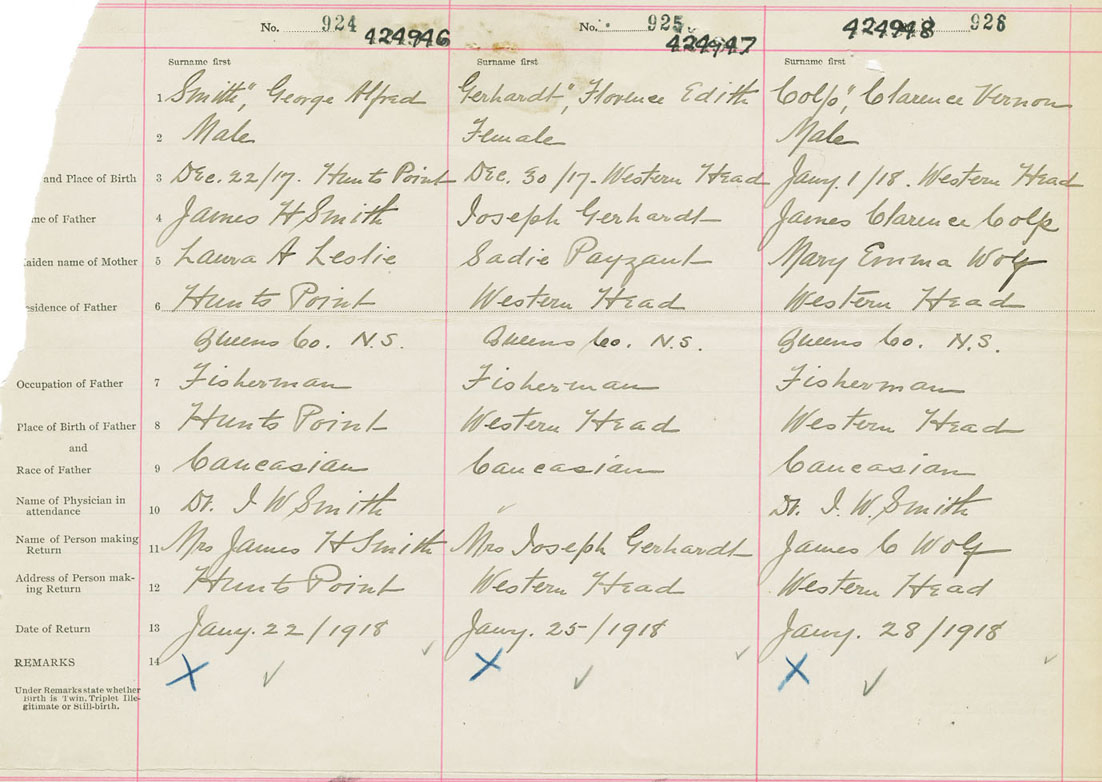 No. 924 No. 925 926
424946 424947 424948
Surname first Surname first Surname first
1 Smith", George Alfred Gerhardt", Florence Edith Colp", Clarence Vernon
2 Male Female Male
and Place of Birth 3 Dec. 22/17. Hunts Point Dec. 30/17. Western Head Jany. 1/18. Western Head
me of Father 4 James H Smith Joseph Gerhardt James Clarence Colp
aiden name of Mother 5 Laura A Leslie Sadie Payzant Mary Emma Wolf
esidence of Father 6 Hunts Point Western Head Western Head
Queens Co. N.S. Queens Co. N.S. Queens Co. N.S.
Occupation of Father 7 Fisherman Fisherman Fisherman
Place of Birth of Father 8 Hunts Point Western Head Western Head
and
Race of Father 9 Caucasian Caucasian Caucasian
Name of Physician in
attendance 10 Dr. J. W Smith Dr. J. W. Smith
Name of Person making
Return 11 Mrs James H Smith Mrs Joseph Gerhardt James C Wolf
Address of Person mak-
ing Return 12 Hunts Point Western Head Western Head
Date of Return 13 Jany. 22/1918 Jany. 25/1918 Jany. 28/1918
REMARKS 14
Under Remarks state whether
Birth is Twin, Triplet Ille-
gitimate or Still-birth.